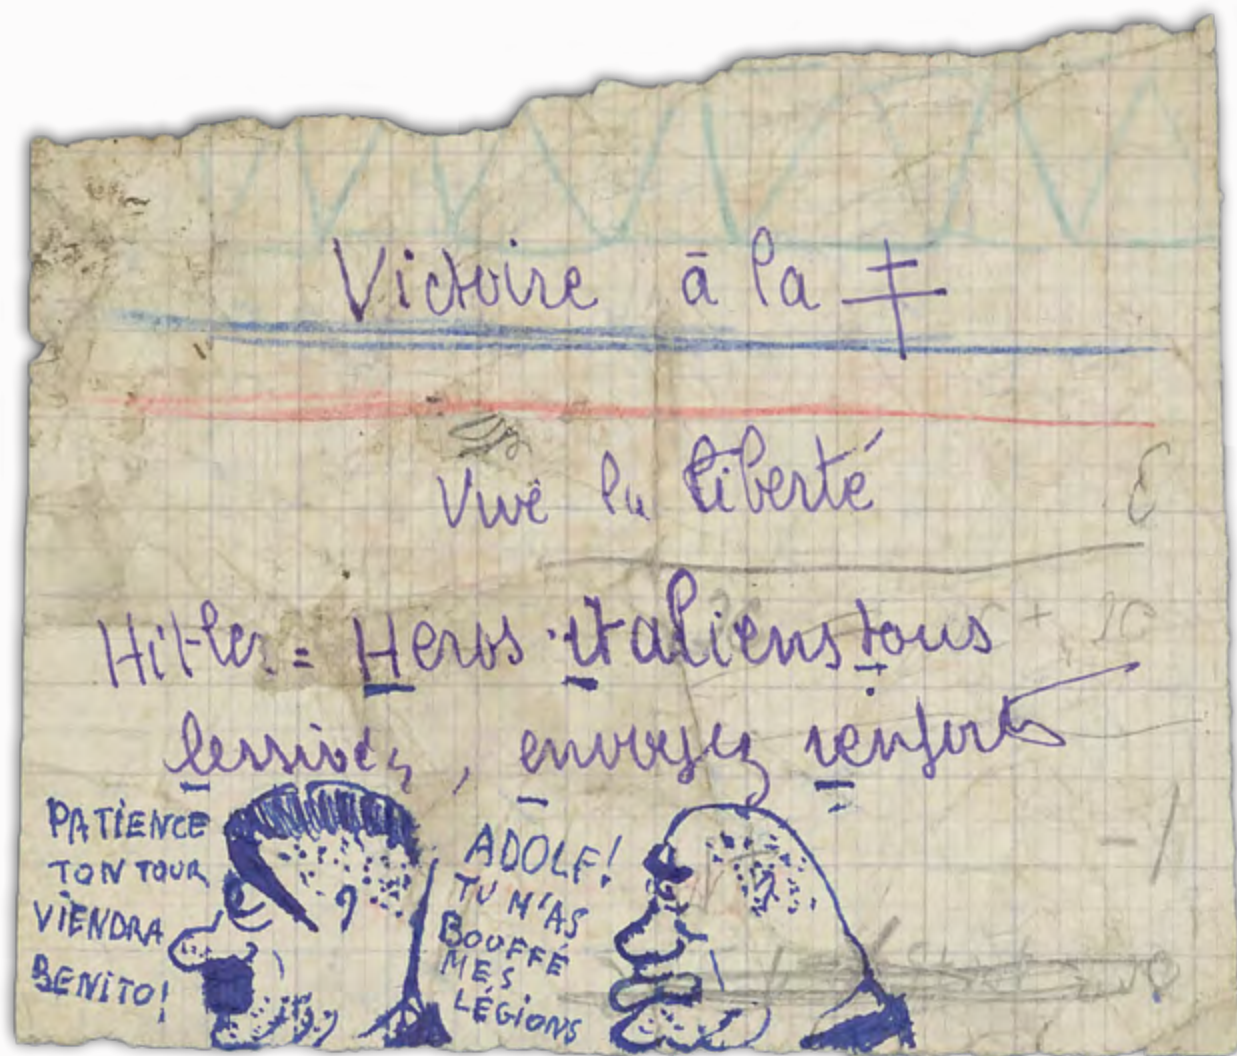 Victoire à la ‡
Vive la liberté
Hitler = Heros italiens tous
lessivés, envoyez renforts
PATIENCE
TON TOUR
VIENDRA
BENITO!
ADOLF!
TU M'AS
BOUFFÉ
MES
LÉGIONS